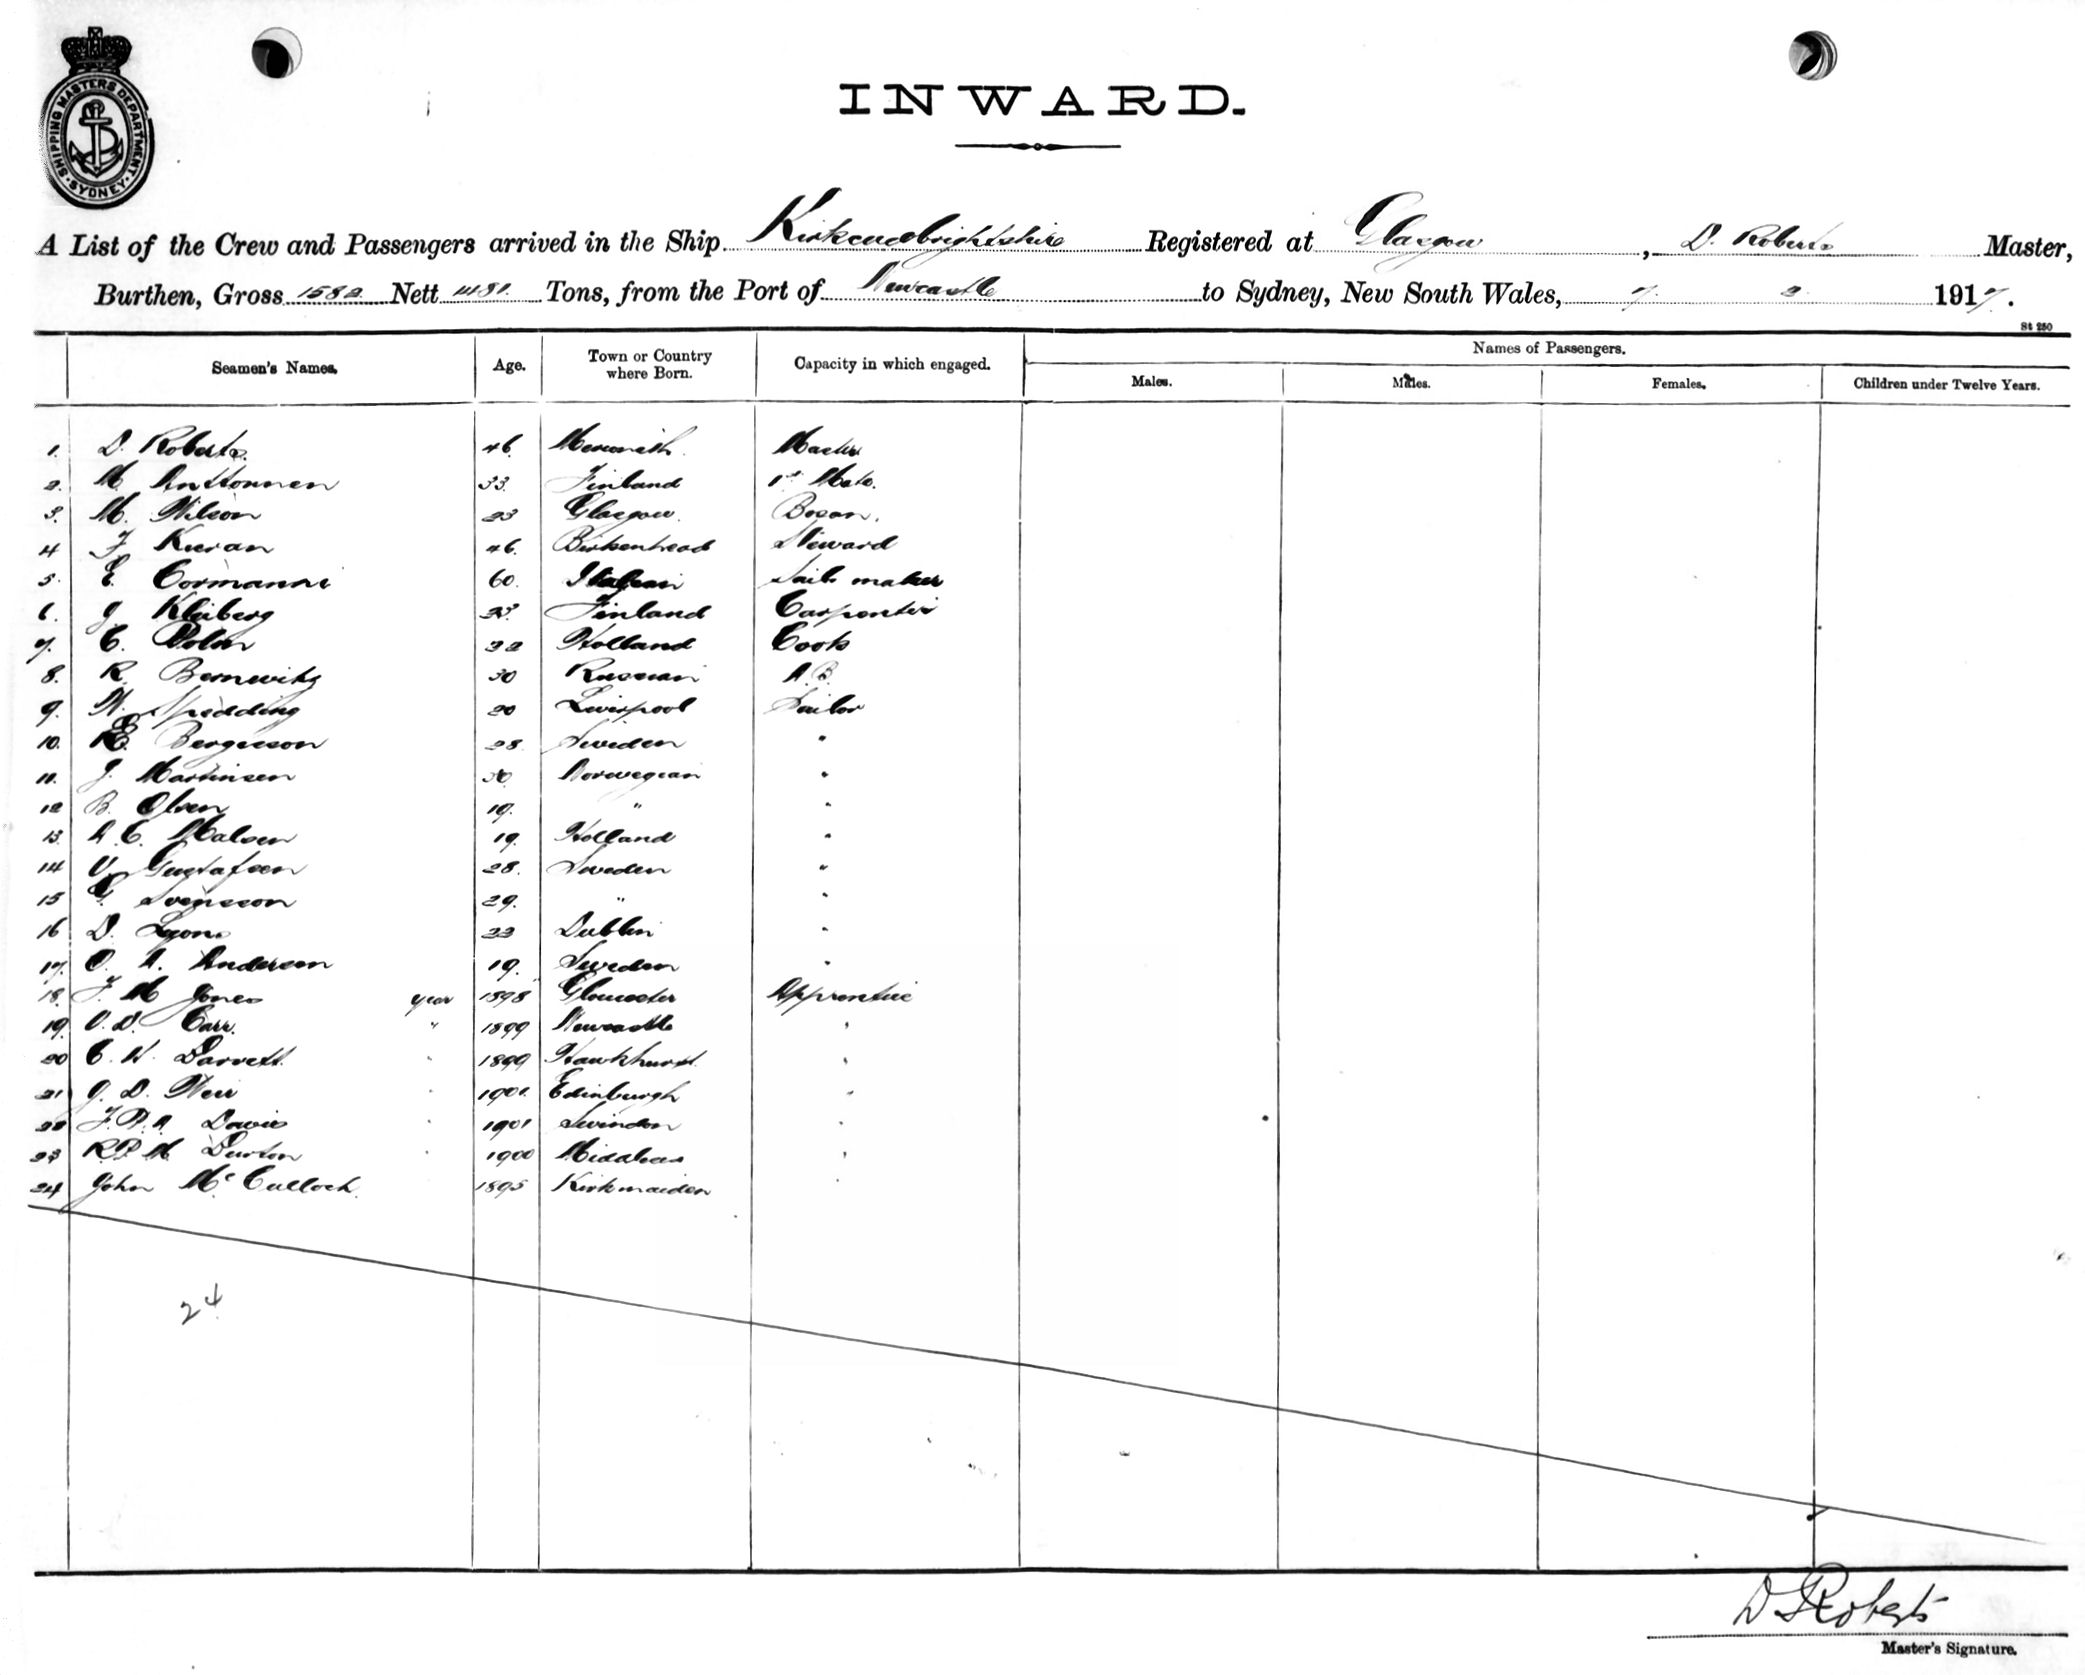 SHIPPING MASTERS DEPARTMENT · SYDNEY ·
INWARD.
A List of the Crew and Passengers arrived in the Ship Kirkcudbrightshire Registered at Glasgow, D. Roberts Master,
Burthen, Gross 1582 Nett 1481 Tons, from the Port of Newcastle to Sydney, New South Wales, 7. 2 1917.
St 250
Seamen's Names. Age. Town or Country where Born. Capacity in which engaged. Names of Passengers.
Males. Males. Females. Children under Twelve Years.
1. D. Roberts. 46. Merionith. Master
2. M. Anttonnen 33. Finland 1st Mate.
3. M. Wilson 23 Glasgow. Bosan.
4 F Kieran 46. Birkenhead Steward
5. E. Cormanni 60. Italian Sail maker
6. J. Kleiberg Finland Carpenter
7. C. Holland Cook
8. R. Bernewitz 30 Russian A.B.
9. W. Spedding 20 Liverpool Sailor
10. Bergesson 28. Sweden "
11. J. Martinsen 30 Norwegian "
12 B. Olsen 19. " "
13. A. C. Malsen 19. Holland "
14 V. Gustafsen 28. Sweden "
15 G. Svensson 29. " "
16 D. Lyons 23 Dublin "
17. O. A. Anderson 19. Sweden "
18. F. M Jones year 1898 Gloucester Apprentice
19. O. D. Carr. " 1899 Newcastle "
20 C. W. Garrett. " 1899 Hawkhurst. "
21 J. D. Weir " 1901. Edinburgh "
22 F. P. A Davis " 1901 Swindon "
23 R. P. M Durton " 1900 "
24 John Mc Culloch. 1895 Kirkmaiden "
24
D Roberts
Master's Signature.